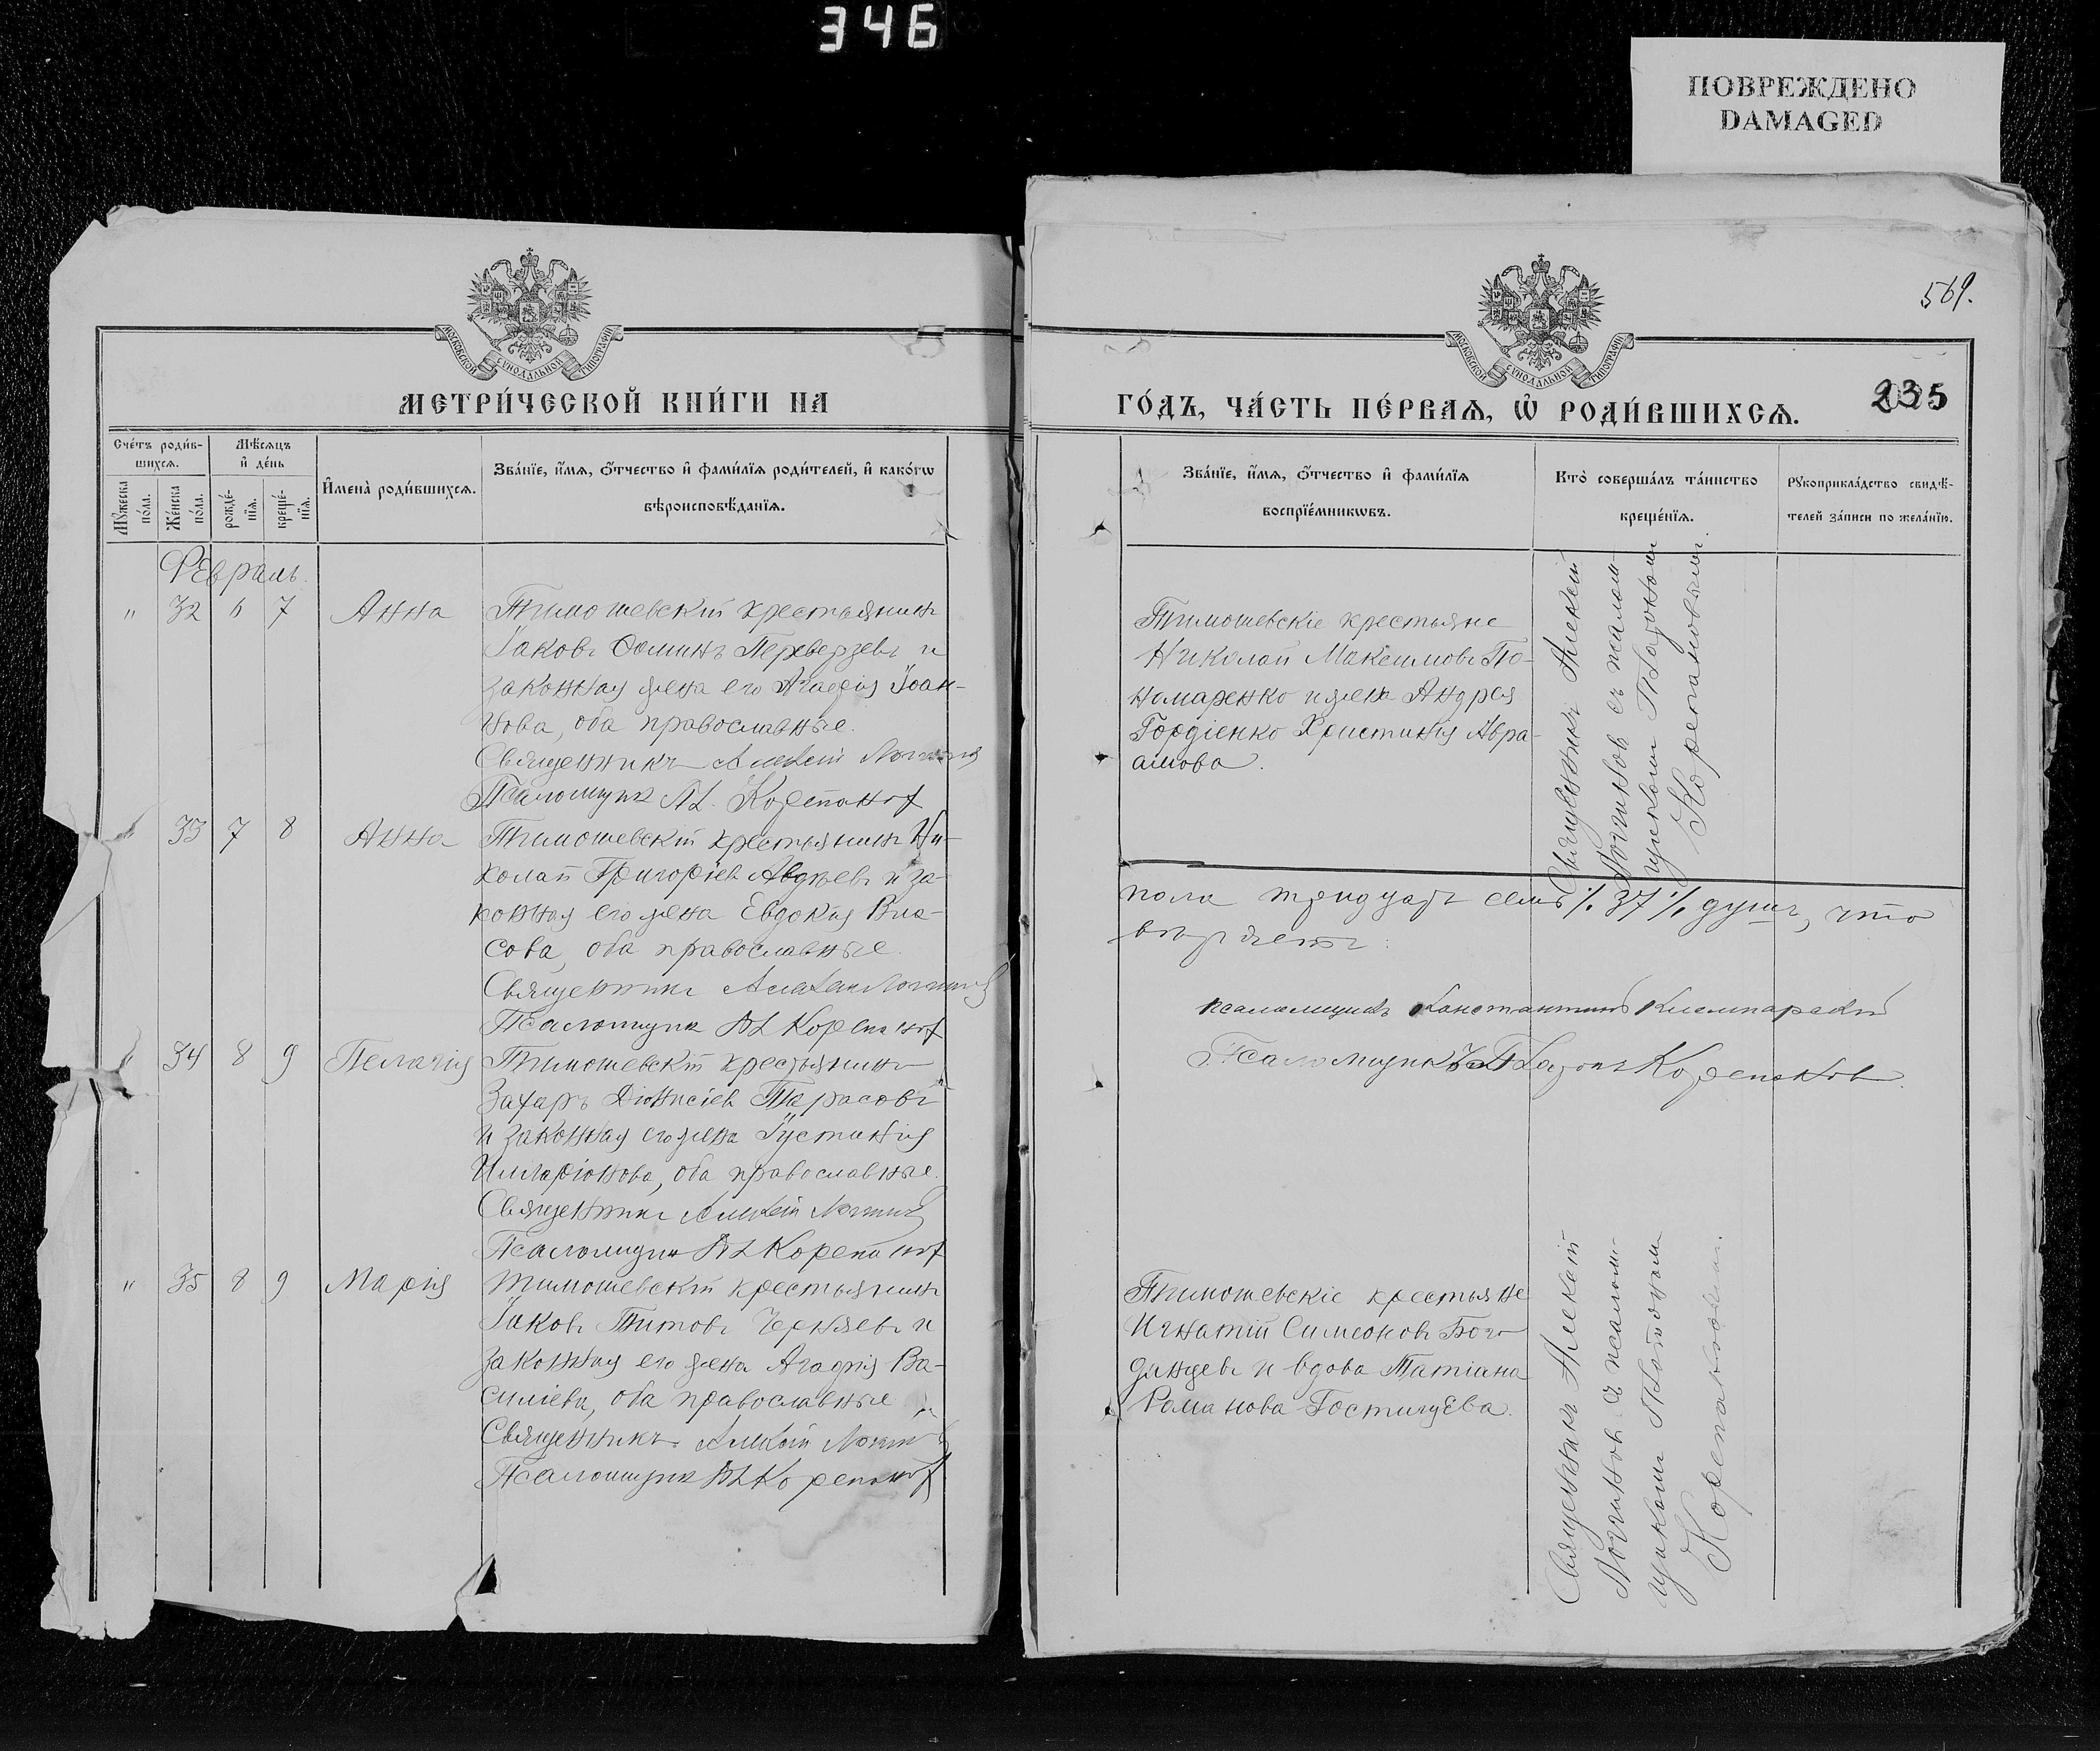 346
ПОВРЕЖДЕНО
DAMAGED
МОСКОВСКОЙ СѴНОДАЛЬНОЙ ТИПОГРАФІИ
МЕТРИ́ЧЕСКОЙ КНИ́ГИ НА
Сче́тъ роди́в-
шихсѧ.
Мꙋ́жеска по́ла.
Же́нска по́ла.
Мѣ́сѧцъ
и҆ де́нь
рожде́-
нїѧ.
креще́-
нїѧ.
И҆мена̀ роди́вшихсѧ.
Зва́нїе, и҆́мѧ, ѻ҆́тчество и҆ фами́лїѧ роди́телей, и҆ како́гѡ
вѣроисповѣ́данїѧ.
Февраль.
" 32 6 7 Анна Тимошевскій крестьянинъ
Іаковъ Ѳоминъ Переверзевъ и
законная жена его Агаѳія Іоан-
нова, оба православные.
Священникъ Алексій Логгинов
Псаломщик Пл. Корепанов
" 33 7 8 Анна Тимошевскій крестьянинъ Ни-
колай Григоріев Авдѣевъ и за-
конная его жена Евдокія Вла-
сова, оба православные.
Священникъ Алексій Логгинов
Псаломщик Пл. Корепанов
" 34 8 9 Пелагія Тимошевскій крестьянинъ
Захаръ Діонисіев Тарасовъ
и законная его жена Іустинія
Илларіонова, оба православные.
Священникъ Алексій Логгинов
Псаломщик Пл. Корепанов
" 35 8 9 Марія Тимошевскій крестьянинъ
Іаковъ Титовъ Черняевъ и
законная его жена Агаѳія Ва-
силіева, оба православные
Священникъ Алексій Логгинов
Псаломщик Пл. Корепанов
569.
МОСКОВСКОЙ СѴНОДАЛЬНОЙ ТИПОГРАФІИ
ГО́ДЪ, ЧА́СТЬ ПЕ́РВАѦ, Ѡ҆ РОДИ́ВШИХСѦ.
235
Зва́нїе, и҆́мѧ, ѻ҆́тчество и҆ фами́лїѧ
воспрїе́мникѡвъ.
Кто̀ соверша́лъ та́инство
креще́нїѧ.
Рꙋкоприкла́дство свидѣ́-
телей за́писи по жела́нїю.
Тимошевскіе крестьяне
Николай Максимовъ По-
номаренко и жена Андрея
Гордіенко Христинія Авра-
амова.
Священникъ Алексій
Логгинов съ псалом-
щиком Платоном
Корепановым.
пола тридцать семь ⁒ 37 ⁒ душъ, что
псаломщикъ Константинъ
Псаломщикъ Платонъ Корепановъ.
Тимошевскіе крестьяне
Игнатій Симеоновъ Бого-
данцевъ и вдова Татіана
Романова Гостищева.
Священникъ Алексій
Логгинов съ псалом-
щиком Платоном
Корепановым.